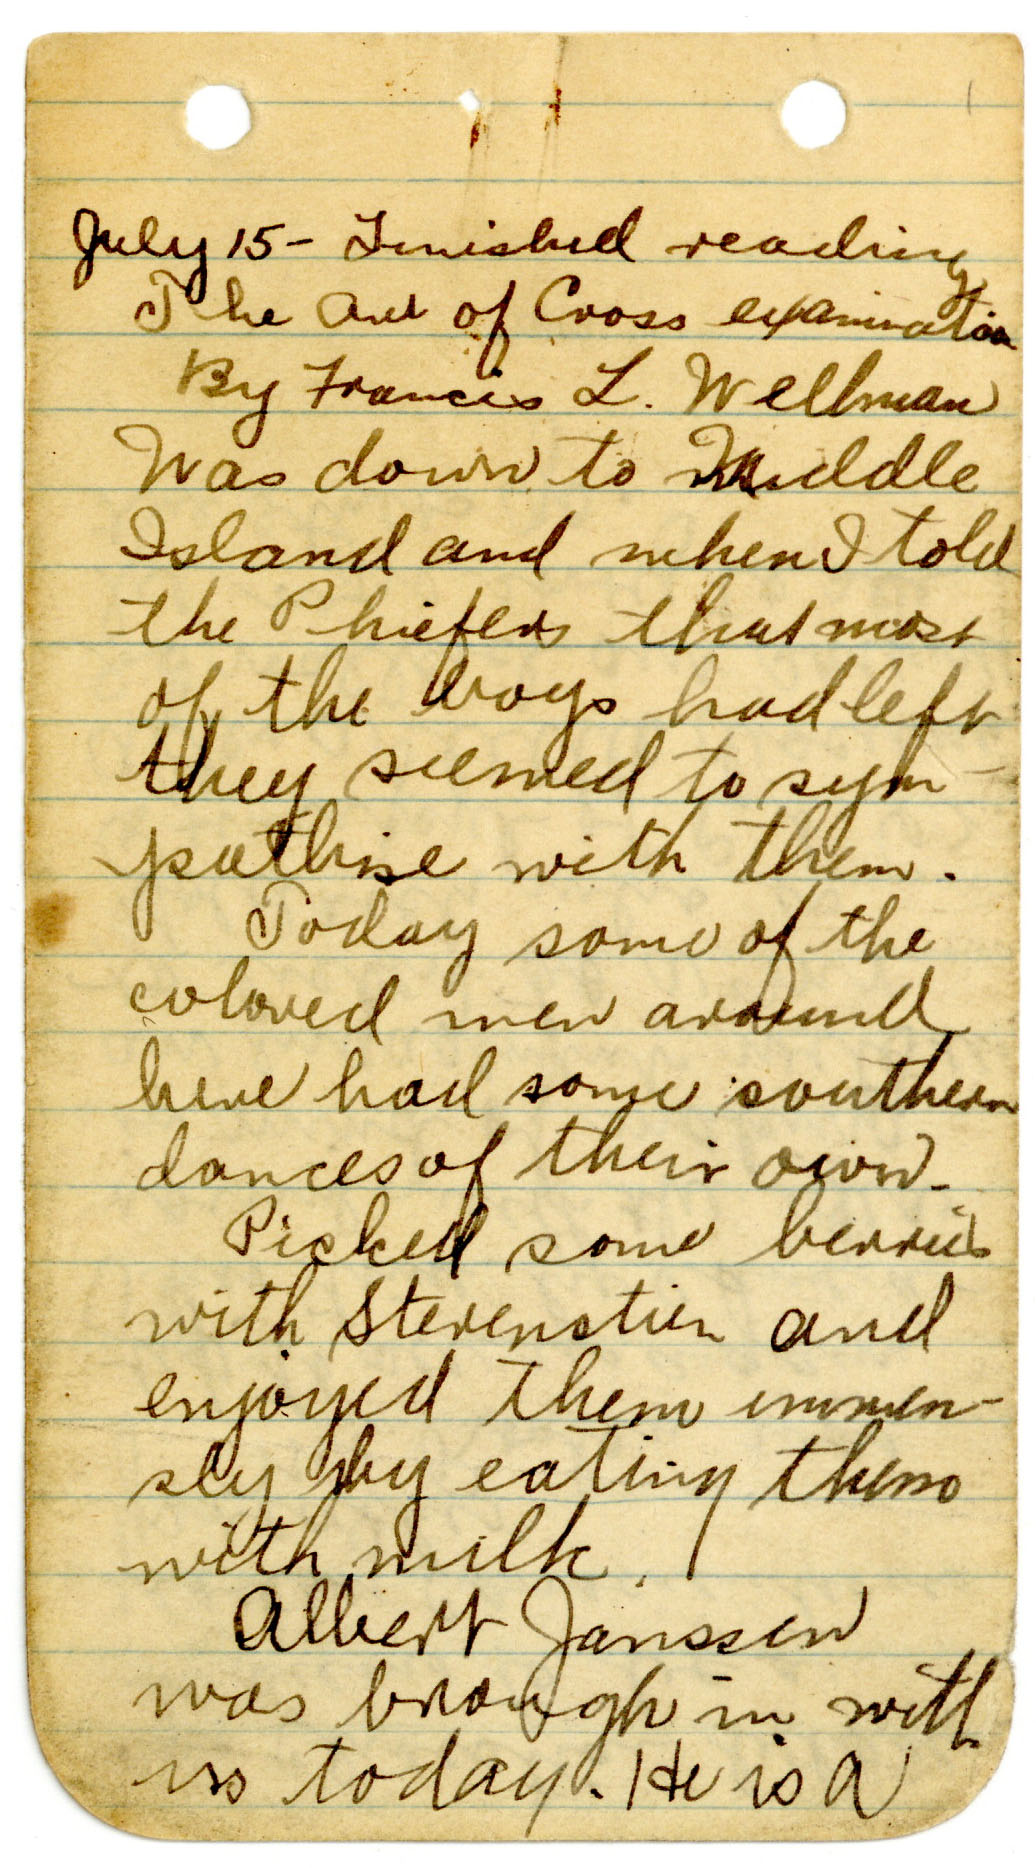 July 15 - Finished reading
The Art of Cross examination
By Francis L. Wellman
Was down to Middle
Island and when I told
the Phiefers that most
of the boys had left
they seemed to sym-
pathise with them.
Today some of the
colored men around
here had some southern
dances of their own.
Picked some berries
with Sterenstien and
enjoyed them immen-
sly by eating them
with milk.
Albert Janssen
was brough in with
us today. He is a